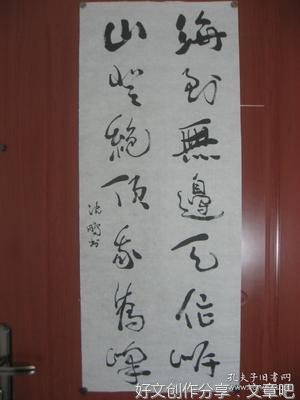 海到無邊天作岸
山登絶頂我為峰
沈鵬書
孔夫子旧书网
好文创作分享：文章吧